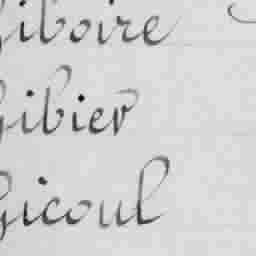 Giboire
Gibier
Gicoul